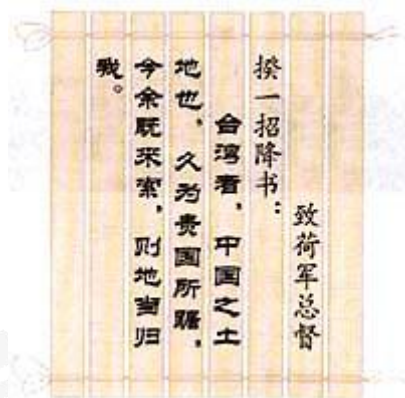 致荷军总督
揆一招降书：
台湾者，中国之土
地也，久为贵国所踞，
今余既来索，则地当归
我。